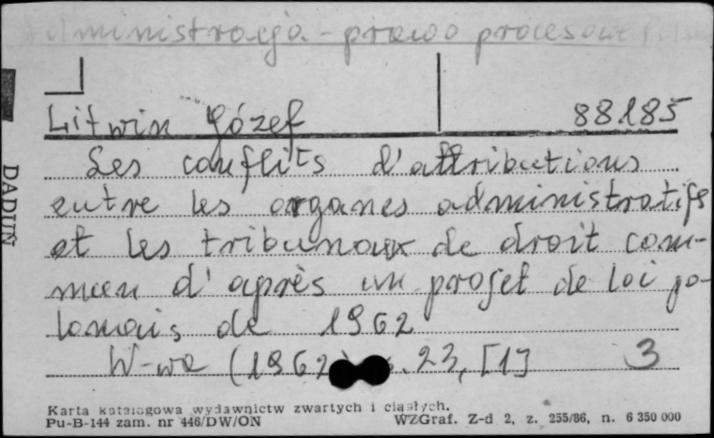 Administracja - prawo procesowe
Litwin Józef 88185
Les conflits d'attributions
entre les organes administratifs
et les tribunaux de droit com-
mun d'après un projet de loi po-
lonais de 1962
W-wa (1962) s. 23, [1] 3
DADUŃ
Karta katalogowa wydawnictw zwartych i ciągłych.
Pu-B-144 zam. nr 446/DW/ON WZGraf. Z-d 2, z. 255/86, n. 6 350 000